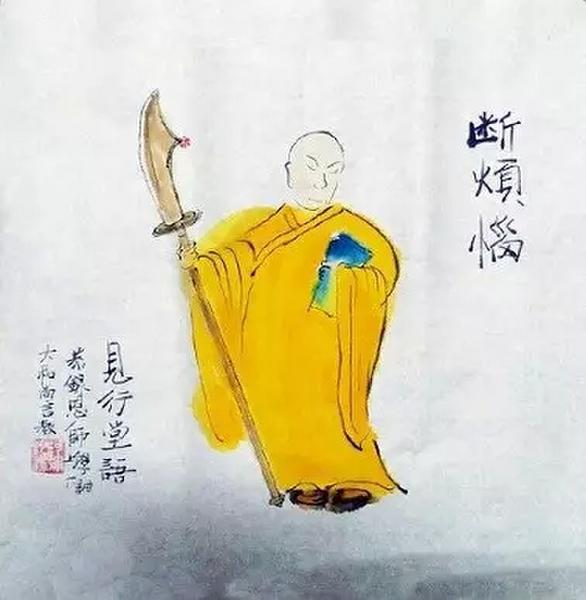 断煩惱
見行堂語
恭錄恩師學誠
大和尚言教